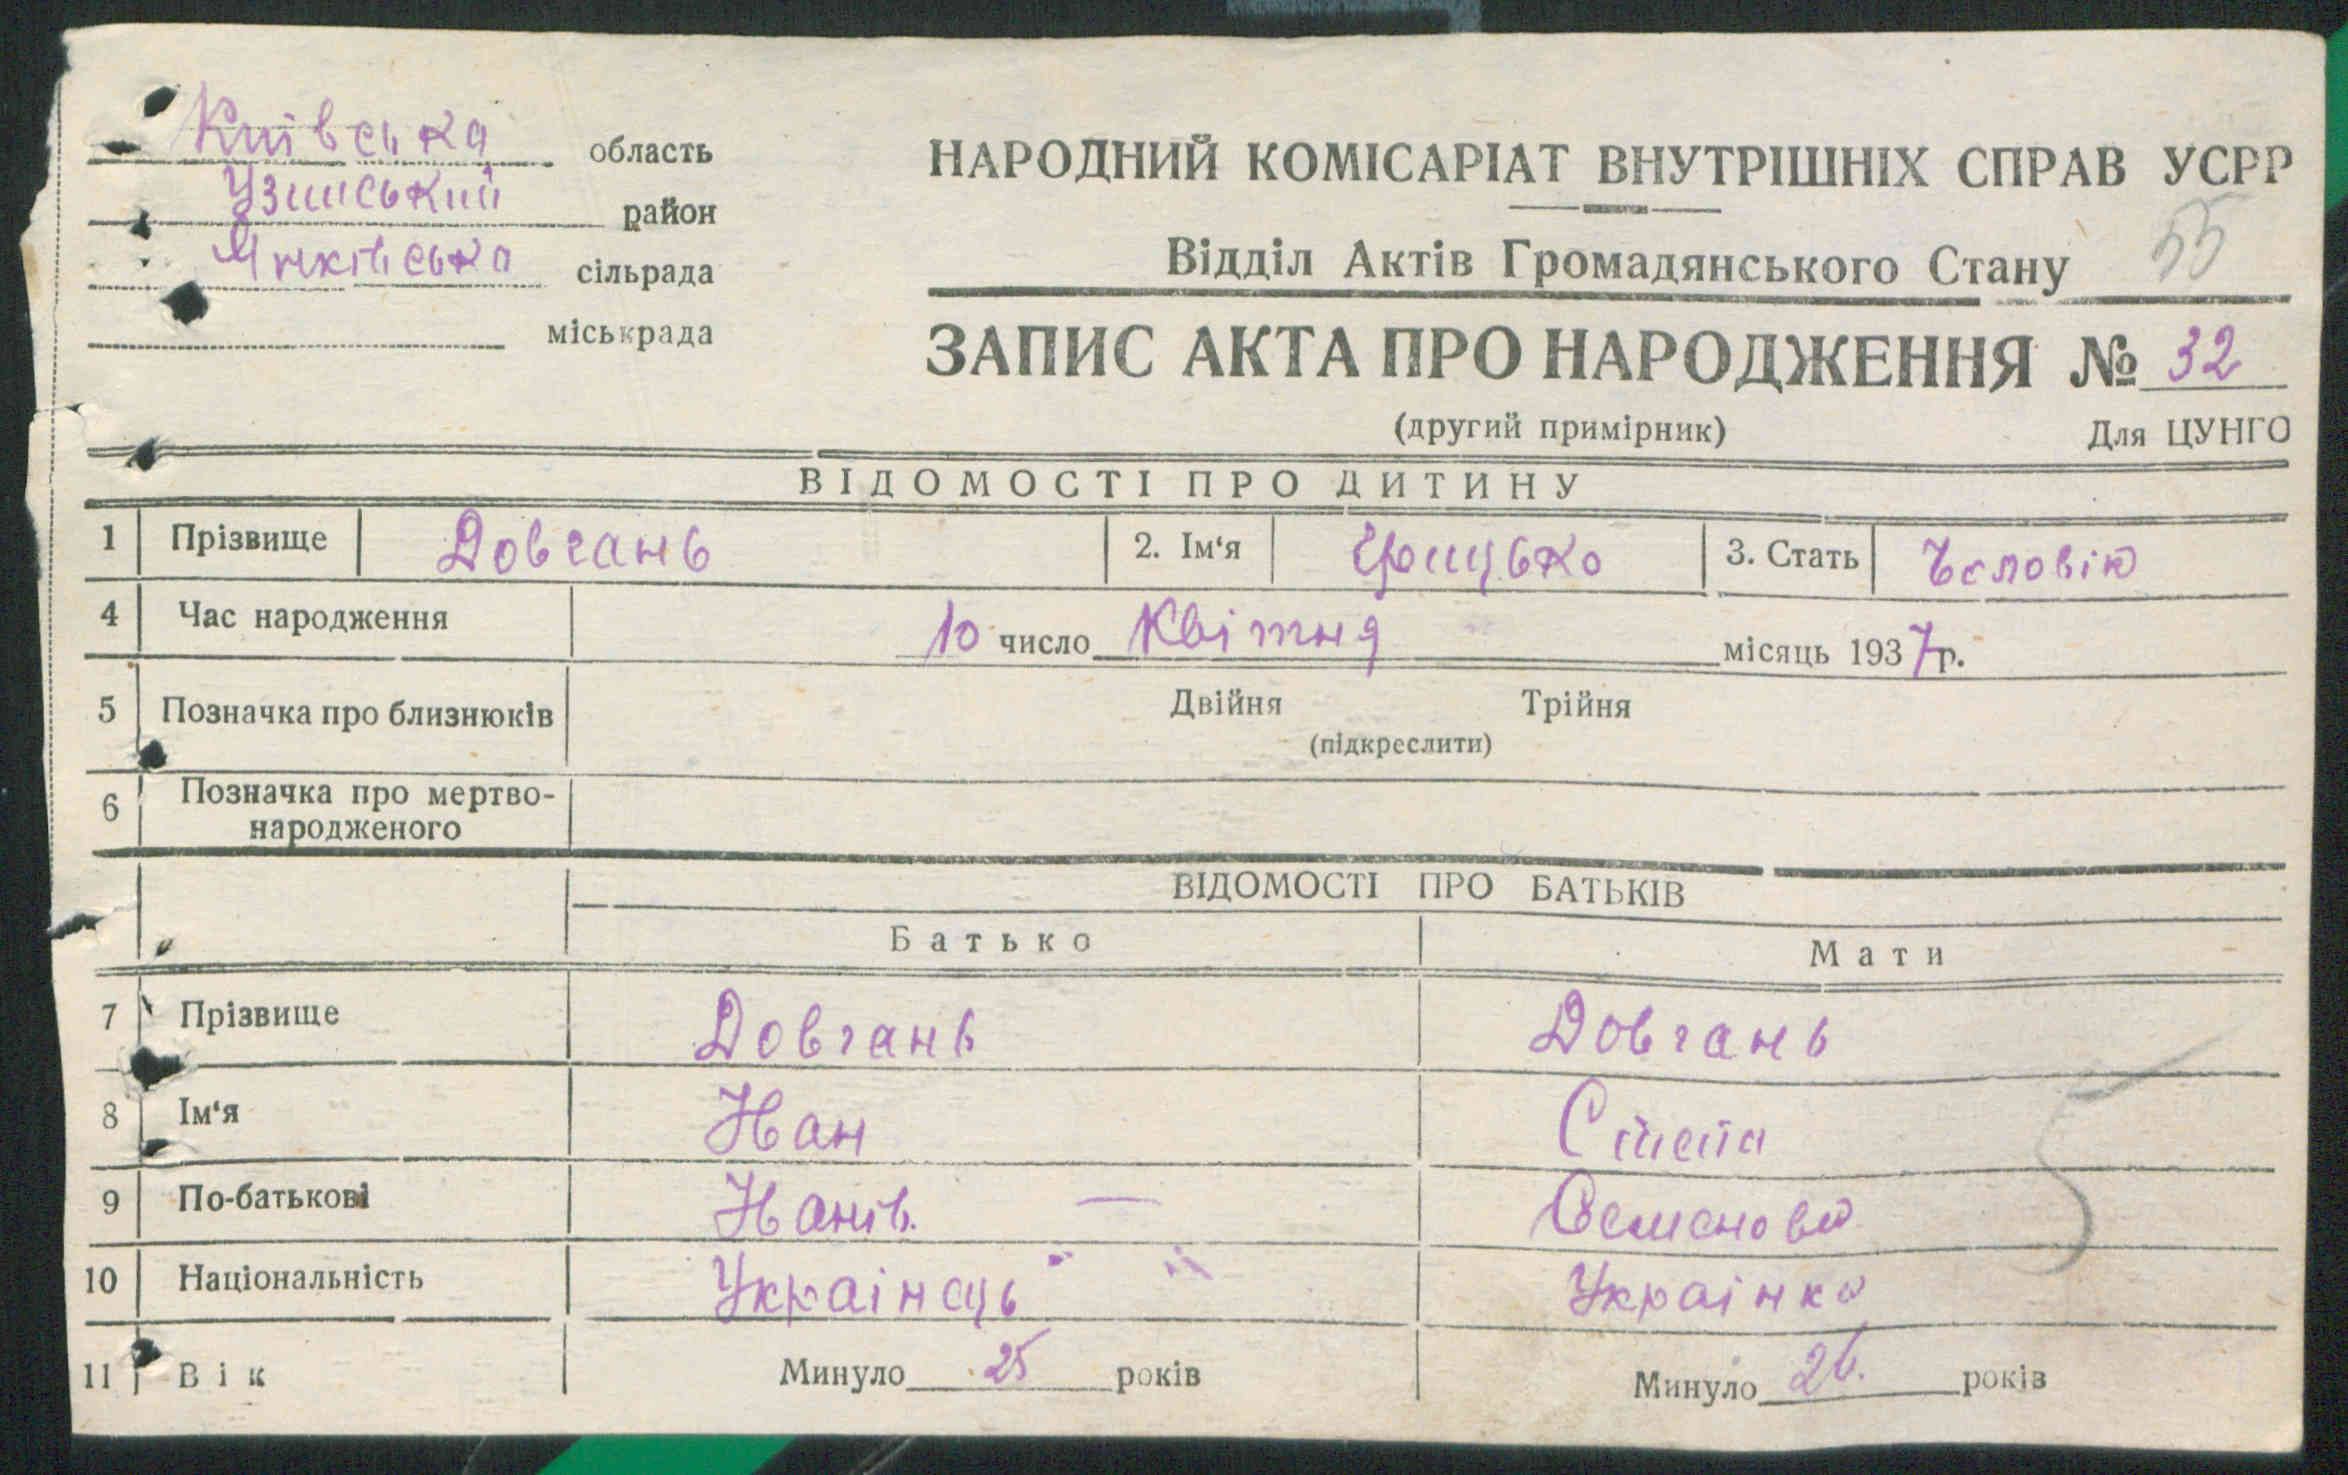 Київська область
Узинський район
Янківська сільрада
міськрада
НАРОДНИЙ КОМІСАРІАТ ВНУТРІШНІХ СПРАВ УСРР
Відділ Актів Громадянського Стану 55
ЗАПИС АКТА ПРО НАРОДЖЕННЯ № 32
(другий примірник) Для ЦУНГО
ВІДОМОСТІ ПРО ДИТИНУ
1 Прізвище Довгань 2. Ім'я Грицько 3. Стать Чоловік
4 Час народження 10 число Квітня місяць 1937р.
5 Позначка про близнюків Двійня Трійня
(підкреслити)
6 Позначка про мертво-
народженого
ВІДОМОСТІ ПРО БАТЬКІВ
Батько Мати
7 Прізвище Довгань Довгань
8 Ім'я
9 По-батькові Семенова
10 Національність Українець Українка
11 Вік Минуло 25 років Минуло 26. років